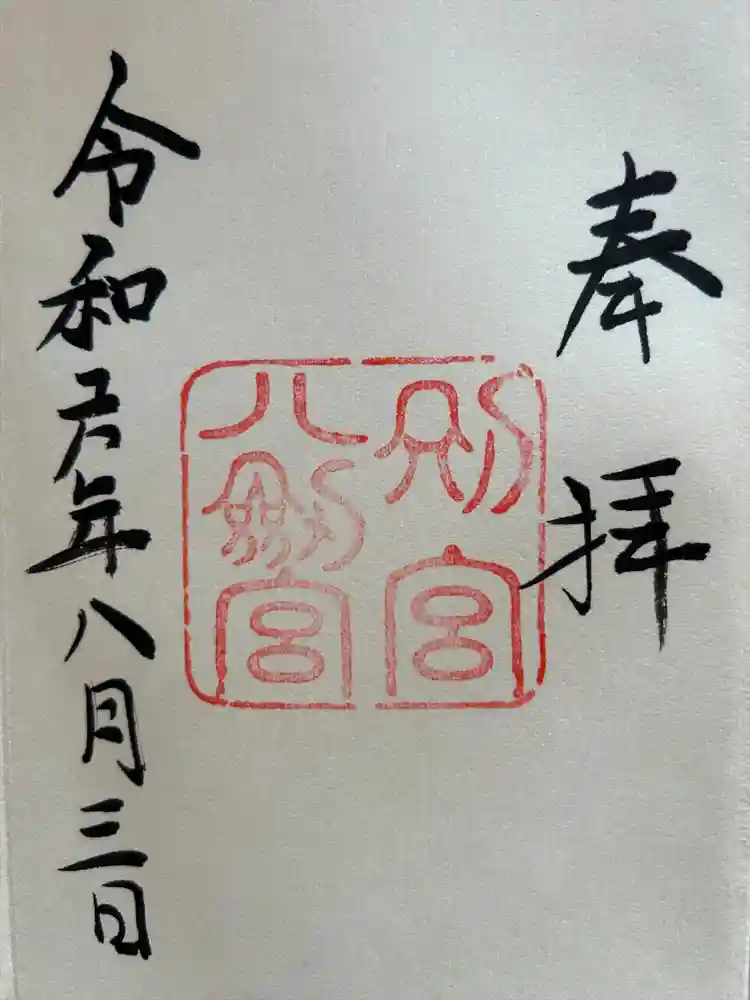 奉拝
別宮
八劔宮
令和元年八月三日